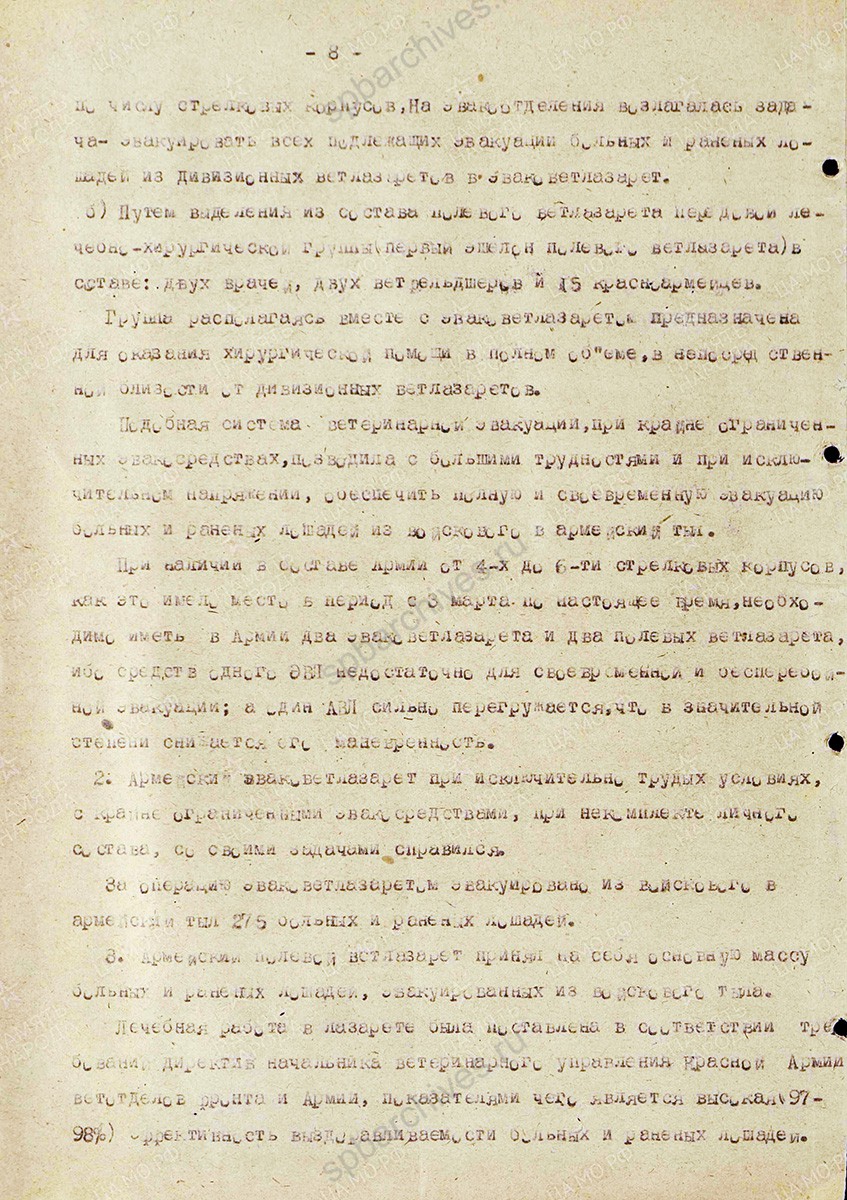 - 8 -
по числу стрелковых корпусов,На эвакоотделения возлагалась зада-
ча- эвакуировать всех подлежащих эвакуации больных и раненых ло-
шадей из дивизионных ветлазаретов в эваковетлазарет.
б) Путем выделения из состава полевого ветлазарета передовой ле-
чебно-хирургической группы(первый эшелон полевого ветлазарета)в
составе: двух врачей, двух ветфельдшеров и 15 красноармейцев.
Группа располагаясь вместе с эваковетлазаретом предназначена
для оказания хирургической помощи в полном об"еме,в непосредствен-
ной близости от дивизионных ветлазаретов.
Подобная система ветеринарной эвакуации,при крайне ограничен-
ных эвакосредствах,позводила с большими трудностями и при исклю-
чительном напряжении, обеспечить полную и своевременную эвакуацию
больных и раненых лошадей из войскового в армейский тыл.
При наличии в составе Армии от 4-х до 6-ти стрелковых корпусов,
как это имело место в период с 3 марта по настоящее время,необхо-
димо иметь в Армии два эваковетлазарета и два полевых ветлазарета,
ибо средств одного ЭВЛ недостаточно для своевременной и бесперебой-
ной эвакуации; а один АВЛ сильно перегружается,что в значительной
степени снижается его маневренность.
2. Армейский эваковетлазарет при исключительно трудых условиях,
с крайне ограниченными эвакосредствами, при некомплекте личного
состава, со своими задачами справился.
За операцию эваковетлазаретом эвакуировано из войскового в
армейский тыл 275 больных и раненых лошадей.
3. Армейский полевой ветлазарет принял на себя основную массу
больных и раненых лошадей, эвакуированных из войскового тыла.
Лечебная работа в лазарете была поставлена в соответствии тре
бований директив начальника ветеринарного управления Красной Армии
ветотделов фронта и Армии, показателями чего является высокая(97-
98%) эффективность выздоравливаемости больных и раненых лошадей.
spbarchives.ru
ЦАМО.РФ